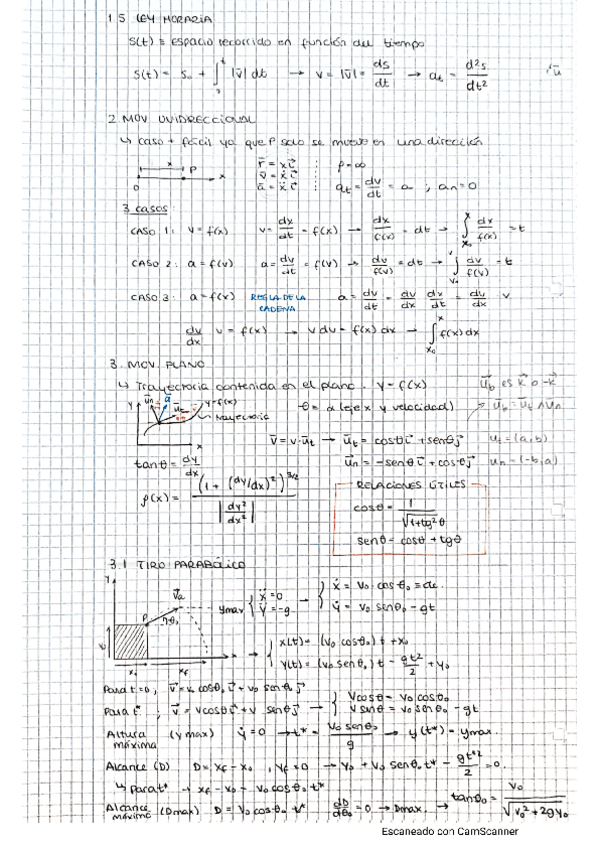 1.5 LEY HORARIA
S(t) = espacio recorrido en función del tiempo
S(t) = S₀ + ∫₀ᵗ |v̄| dt → v = |v̄| = ds/dt → aₜ = d²s/dt²
2 MOV UNIDIRECCIONAL
↳ caso + fácil ya que P solo se mueve en una dirección
x
O P x
r̄ = x ī
v̄ = ẋ ī
ā = ẍ ī
ρ = ∞
aₜ = dv/dt = a ; aₙ = 0
3 casos:
CASO 1: v = f(x) v = dx/dt = f(x) → dx/f(x) = dt → ∫ₓ₀ˣ dx/f(x) = t
CASO 2: a = f(v) a = dv/dt = f(v) → dv/f(v) = dt → ∫ᵥ₀ᵛ dv/f(v) = t
CASO 3: a = f(x) REGLA DE LA CADENA a = dv/dt = dv/dx dx/dt = dv/dx v
dv/dx v = f(x) → v dv = f(x) dx → ∫ₓ₀ˣ f(x) dx
3. MOV. PLANO
↳ Trayectoria contenida en el plano. y = f(x) u⃗b es k⃗ o -k⃗
y u⃗n a⃗ u⃗t y = f(x) trayectoria x
θ = α (eje x y velocidad) u⃗b = u⃗t ∧ u⃗n
v̄ = v·u⃗t → u⃗t = cosθ i⃗ + senθ j⃗ ut = (a,b)
u⃗n = -senθ i⃗ + cosθ j⃗ un = (-b,a)
tanθ = dy/dx
ρ(x) = (1 + (dy/dx)²)^(3/2) / |dy²/dx²|
RELACIONES ÚTILES
cosθ = 1/√(1+tg²θ)
senθ = cosθ + tgθ
3.1 TIRO PARABÓLICO
Y P x
ymax { ẍ = 0 ÿ = -g → { ẋ = v₀ cosθ₀ = cte. ẏ = v₀ senθ₀ - gt
→ { x(t) = (v₀ cosθ₀) t + x₀
y(t) = (v₀ senθ₀) t - gt²/2 + y₀
Para t=0, v⃗ = v₀ cosθ₀ i⃗ + v₀ senθ₀ j⃗
Para t; v⃗ = v cosθ i⃗ + v senθ j⃗ → { v cosθ = v₀ cosθ₀ v senθ = v₀ senθ₀ - gt
Altura máxima (ymax) ẏ = 0 → t* = v₀ senθ₀/g → y(t*) = ymax.
Alcance (D) D = xf - x₀, yf = 0 → y₀ + v₀ senθ₀ t* - gt*²/2 = 0.
↳ Para t* → xf - x₀ = v₀ cosθ₀ t*
Alcance máximo (Dmax) D = v₀ cosθ₀ t* dD/dθ₀ = 0 → Dmax. → tanθ₀ = v₀/√(v₀² + 2gy₀)
Escaneado con CamScanner